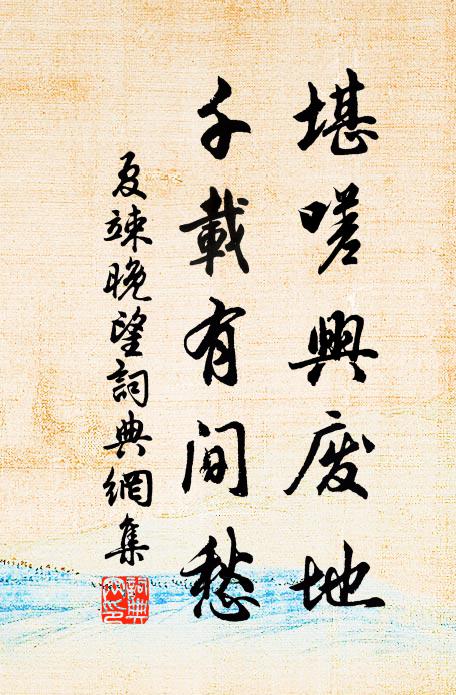 堪嗟興废地
千載有间愁
夏竦晚望詞典網集
詞典